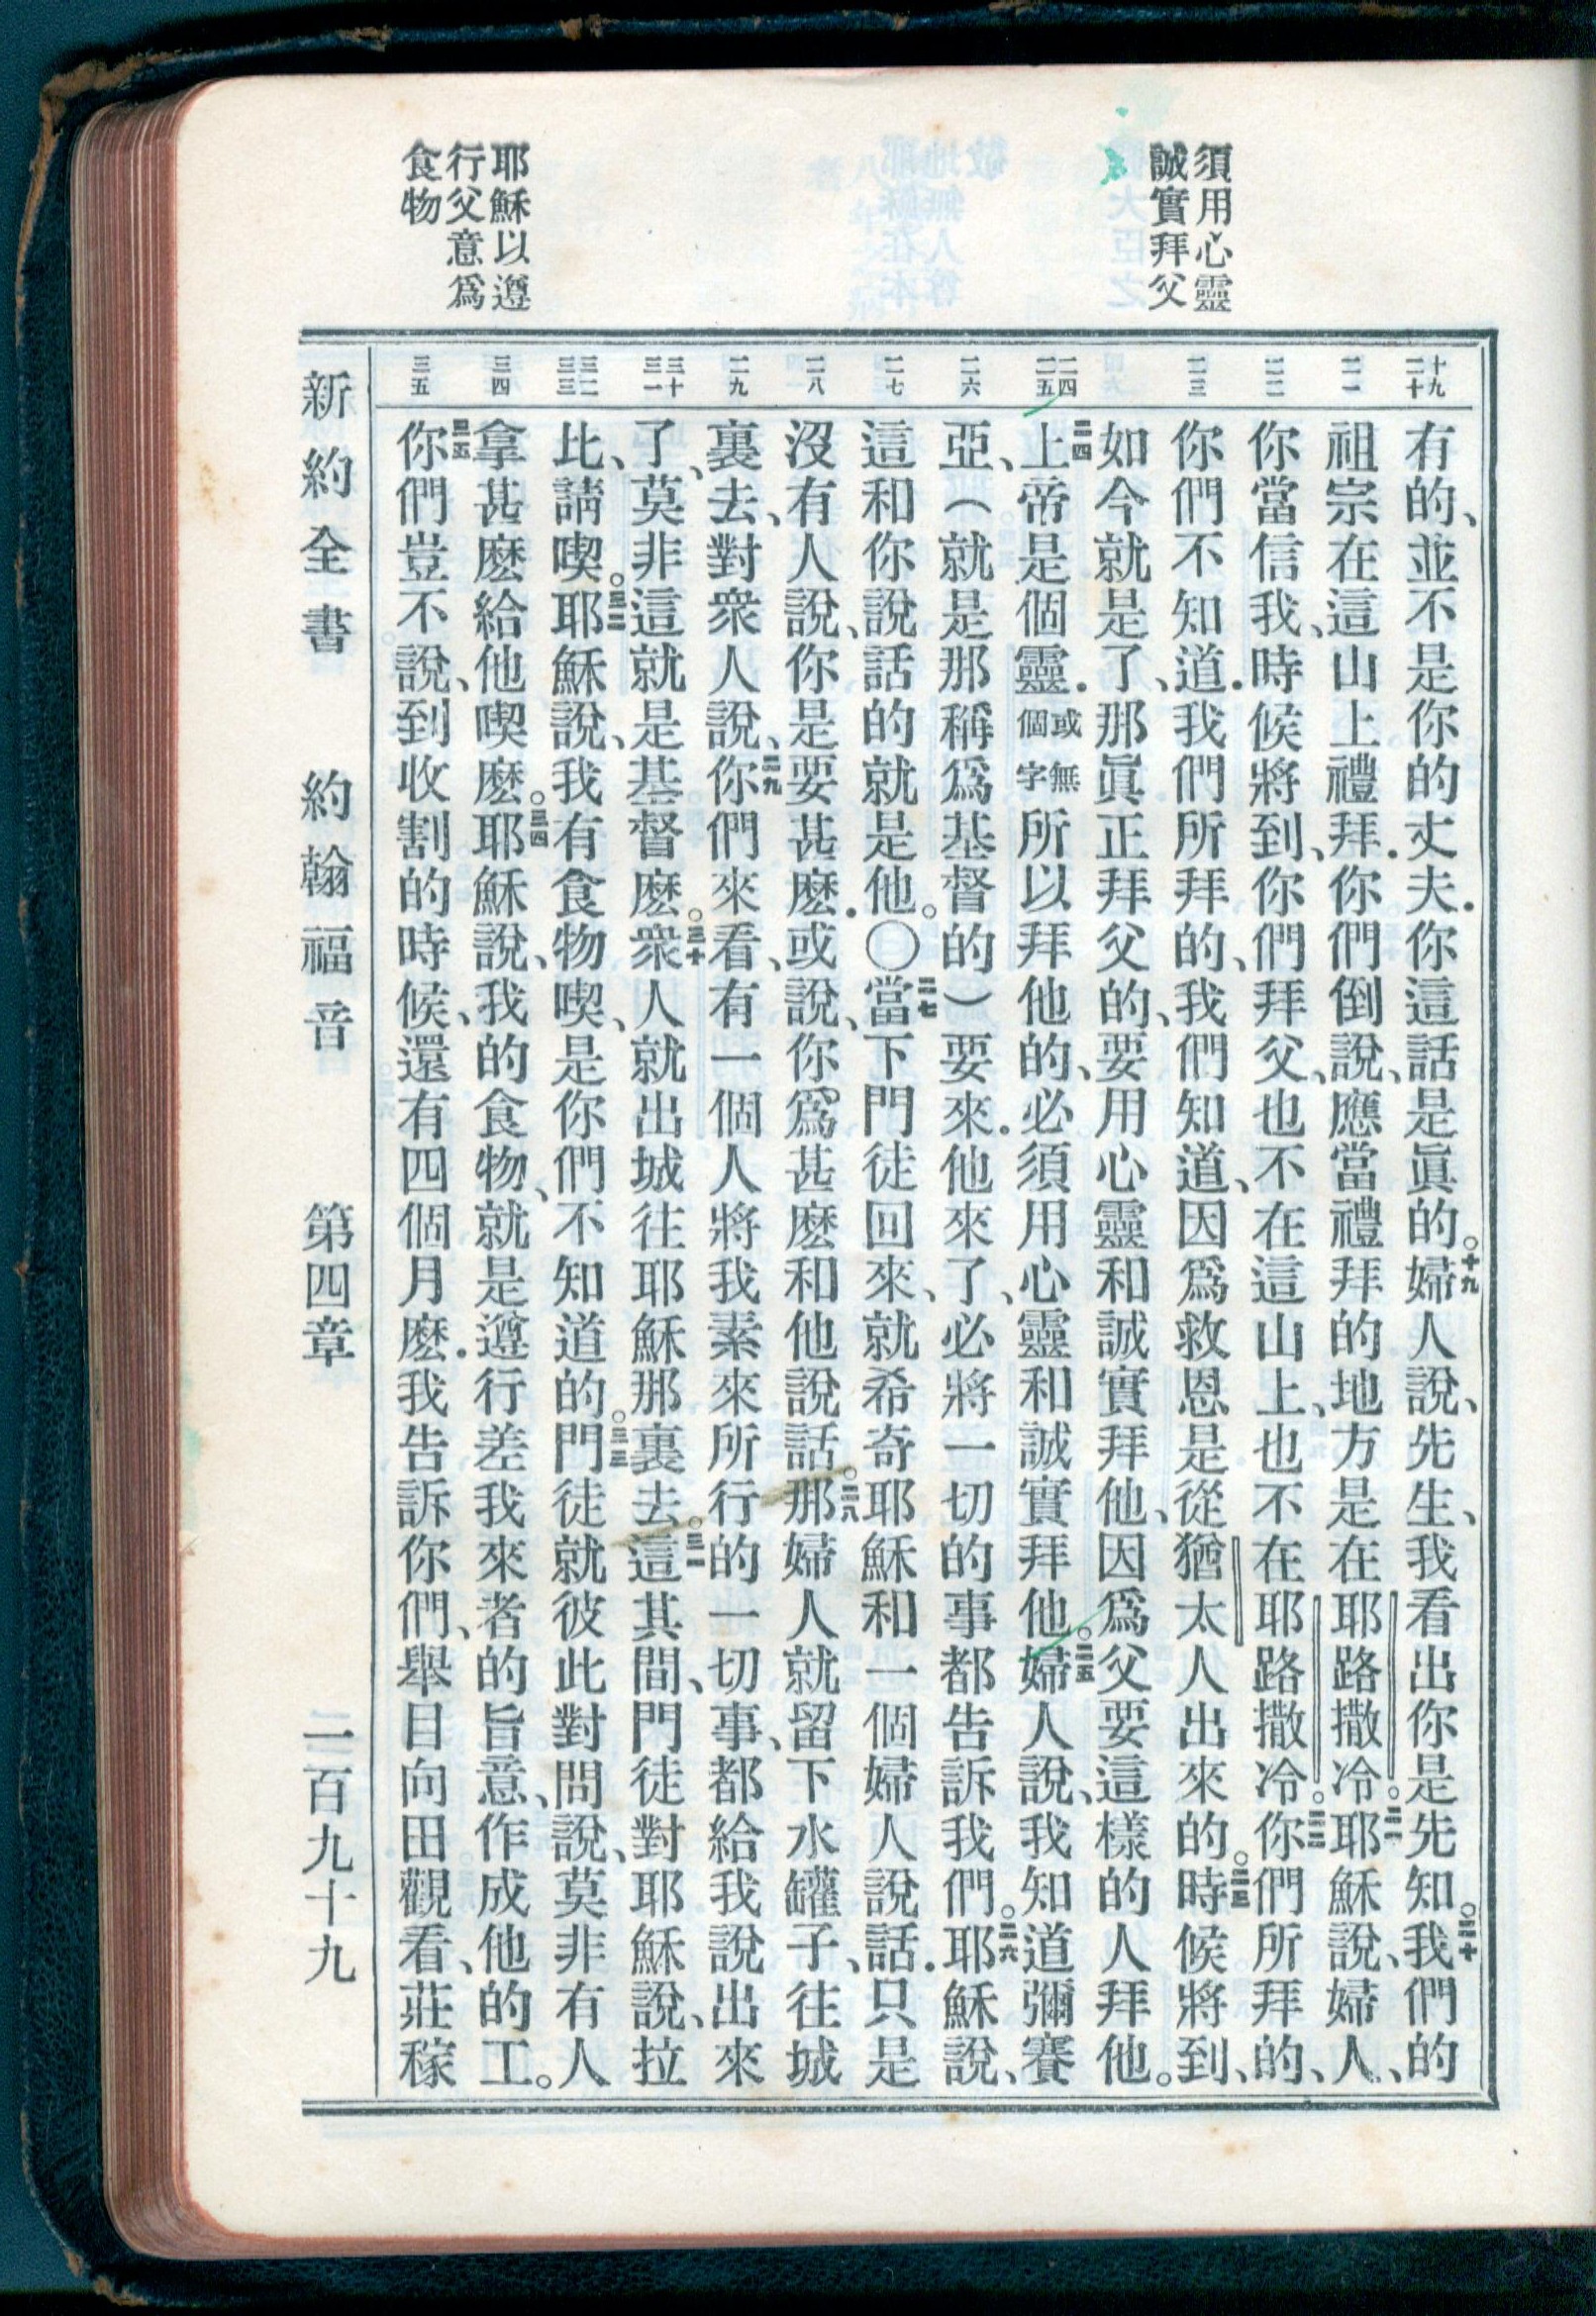 須用心靈
誠實拜父
耶穌以遵
行父意爲
食物
十九
二十
二一
二二
二三
二四
二五
二六
二七
二八
二九
三十
三一
三二
三三
三四
三五
有的、並不是你的丈夫．你這話是眞的。十九婦人說、先生、我看出你是先知。二十我們的
祖宗在這山上禮拜．你們倒說、應當禮拜的地方是在耶路撒冷。二一耶穌說、婦人、
你當信我、時候將到、你們拜父、也不在這山上、也不在耶路撒冷。二二你們所拜的、
你們不知道．我們所拜的、我們知道、因爲救恩是從猶太人出來的。二三時候將到、
如今就是了、那眞正拜父的、要用心靈和誠實拜他、因爲父要這樣的人拜他。
二四上帝是個靈．或無個字所以拜他的、必須用心靈和誠實拜他。二五婦人說、我知道彌賽
亞、（就是那稱爲基督的）要來．他來了、必將一切的事都告訴我們。二六耶穌說、
這和你說話的就是他。〇二七當下門徒回來、就希奇耶穌和一個婦人說話．只是
沒有人說、你是要甚麽．或說、你爲甚麽和他說話。二八那婦人就留下水罐子、往城
裏去、對衆人說、二九你們來看、有一個人將我素來所行的一切事、都給我說出來
了、莫非這就是基督麽。三十衆人就出城往耶穌那裏去。三一這其間、門徒對耶穌說、拉
比、請喫。三二耶穌說、我有食物喫、是你們不知道的。三三門徒就彼此對問說、莫非有人
拿甚麽給他喫麽。三四耶穌說、我的食物、就是遵行差我來者的旨意、作成他的工。
三五你們豈不說、到收割的時候、還有四個月麽．我告訴你們、舉目向田觀看、莊稼
新約全書　約翰福音　第四章　一百九十九